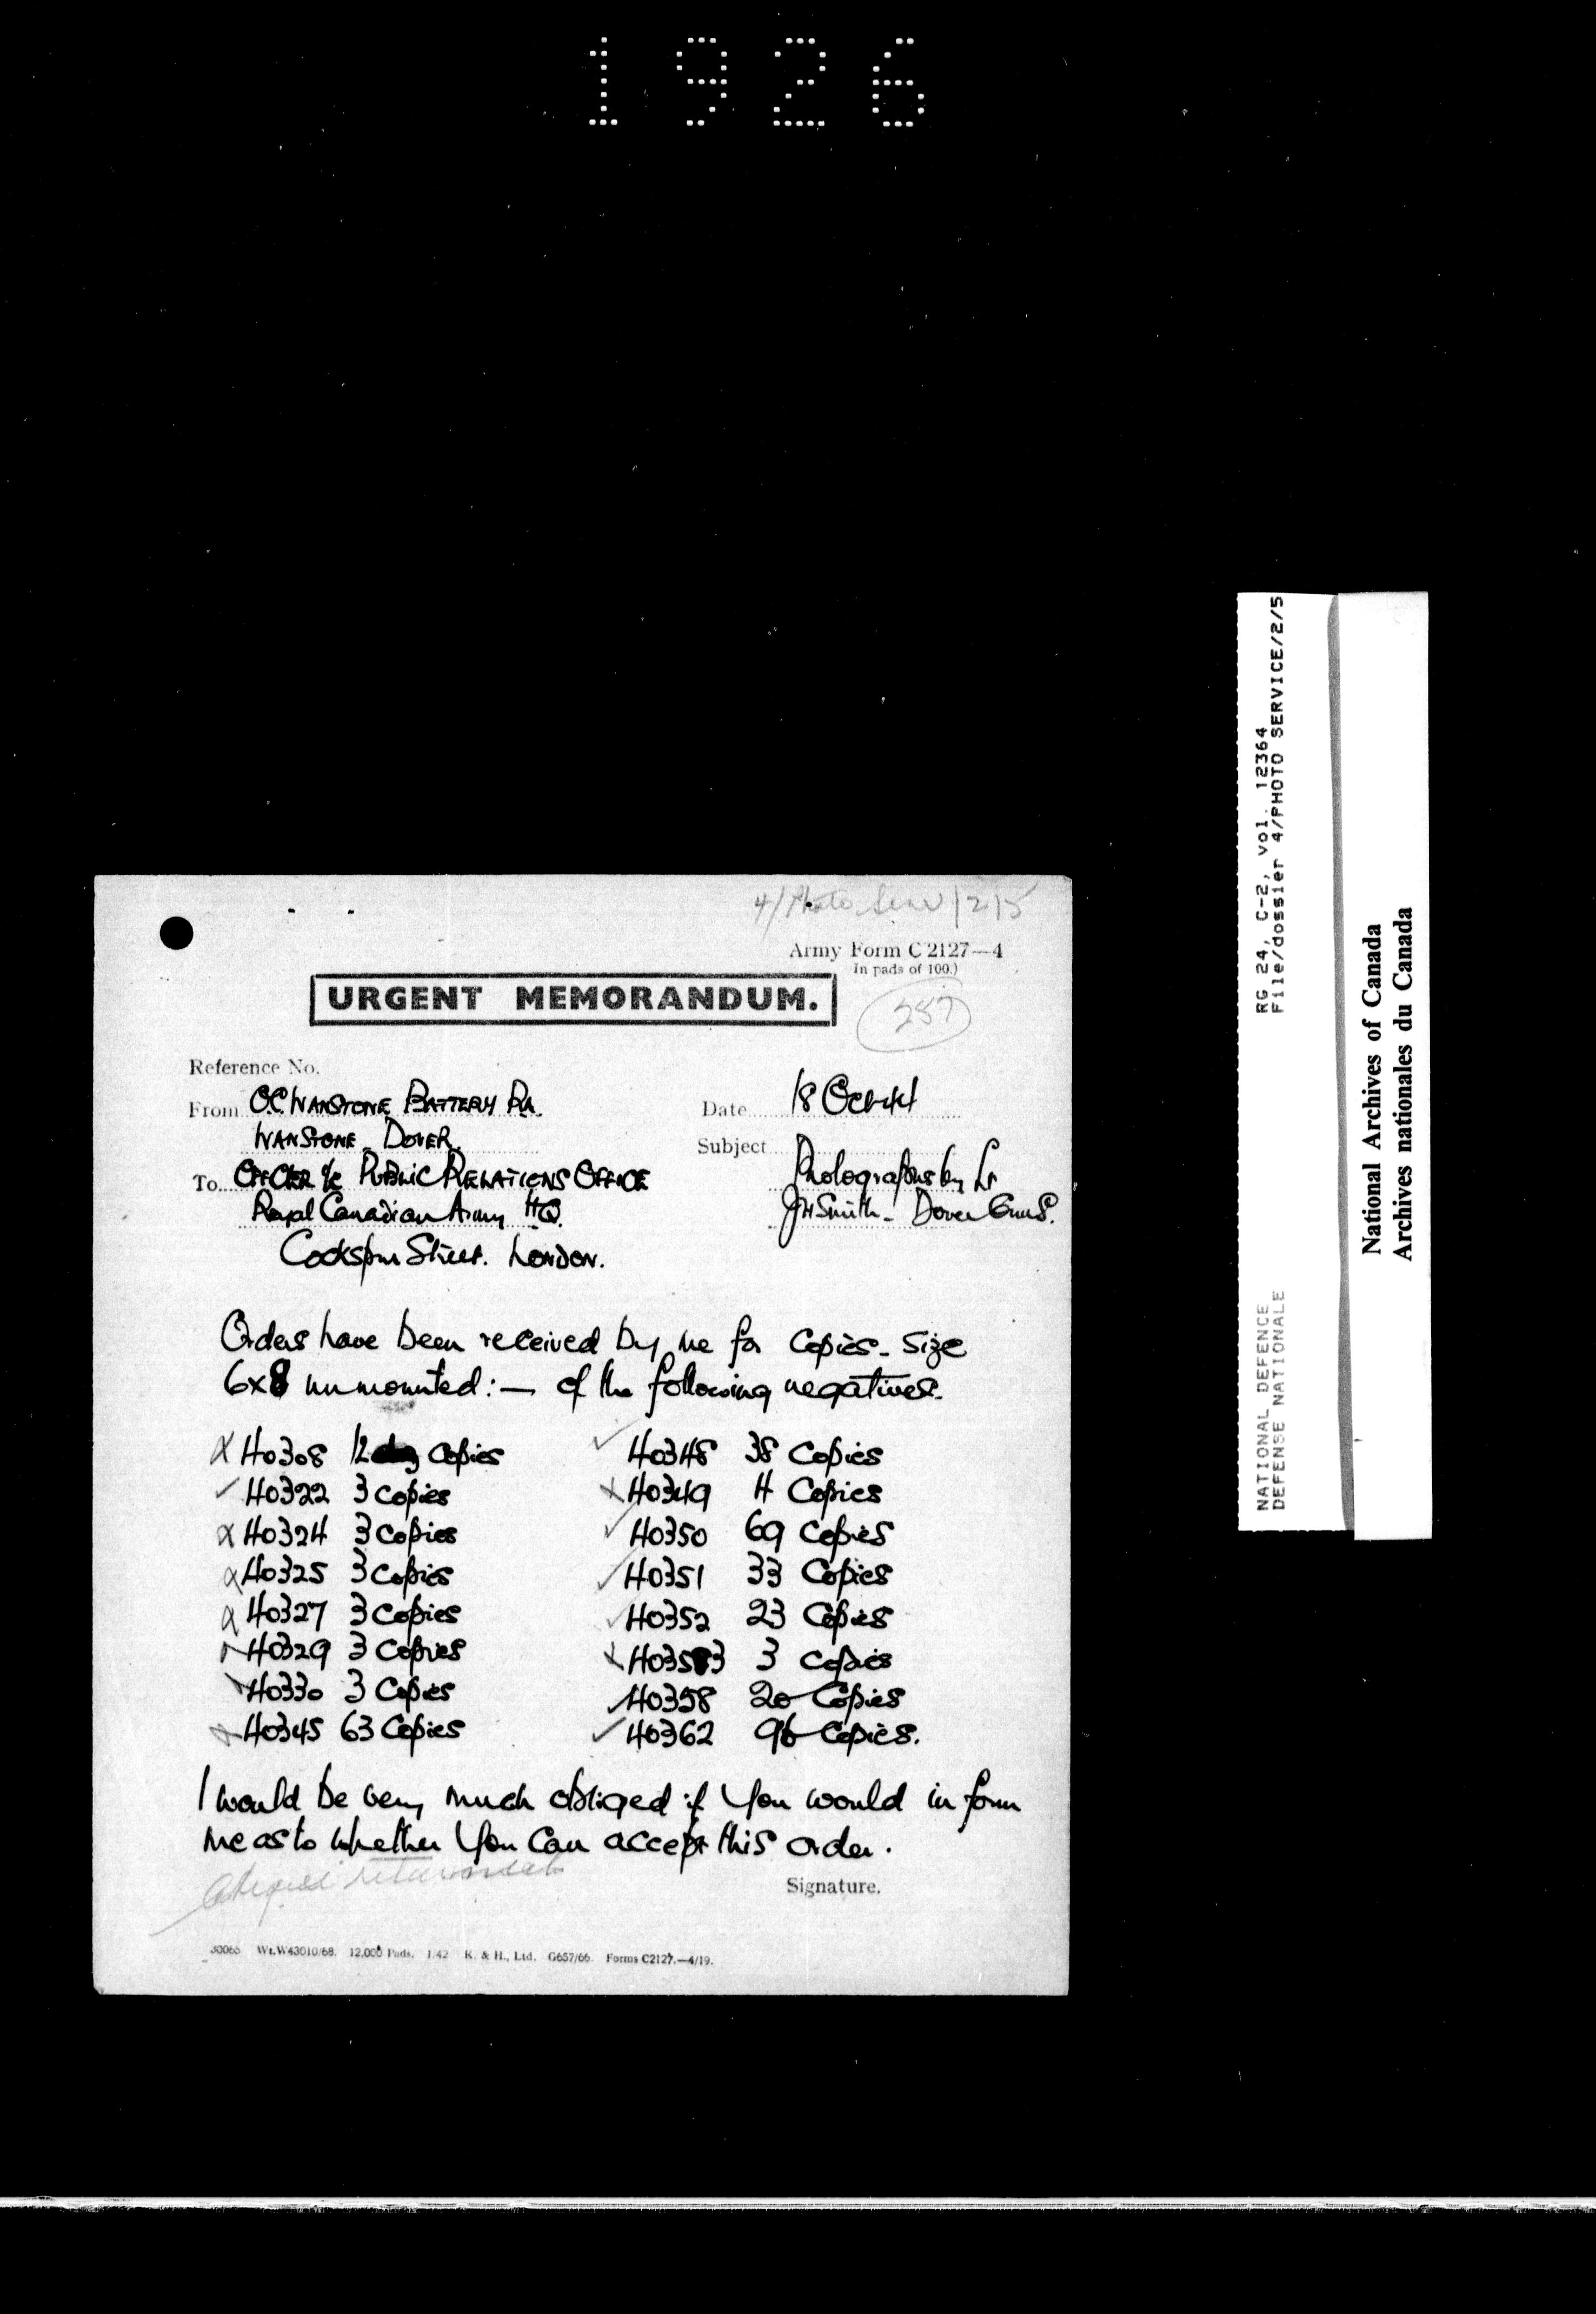 1926
4/Photo Serv/2/5
Army Form C 2127—4
In pads of 100.)
URGENT MEMORANDUM.
257
Reference No.
From O.C. WANSTONE BATTERY RA.
WANSTONE DOVER.
Date 18 Oct 44
Subject Photographs by Lt
JH Smith - Dover Guns.
To OFFICER i/c PUBLIC RELATIONS OFFICE
Royal Canadian Army HQ.
Cockspur Street. LONDON.
Orders have been received by me for Copies - Size
6x8 unmounted:— of the following negatives.
X 40308 12 Copies ✓ 40348 38 Copies
✓ 40322 3 Copies X 40349 4 Copies
X 40324 3 Copies ✓ 40350 69 Copies
X 40325 3 Copies ✓ 40351 33 Copies
X 40327 3 Copies ✓ 40352 23 Copies
40329 3 Copies X 40353 3 Copies
40330 3 Copies ✓ 40358 20 Copies
X 40345 63 Copies ✓ 40362 96 Copies.
I would be very much obliged if you would inform
me as to whether you can accept this order.
Signature.
30065 Wt.W43010/68. 12,000 Pads. 1/42 K. & H., Ltd. G657/66. Forms C2127.—4/19.
RG 24, C-2, vol. 12364
File/dossier 4/PHOTO SERVICE/2/5
NATIONAL DEFENCE
DEFENSE NATIONALE
National Archives of Canada
Archives nationales du Canada